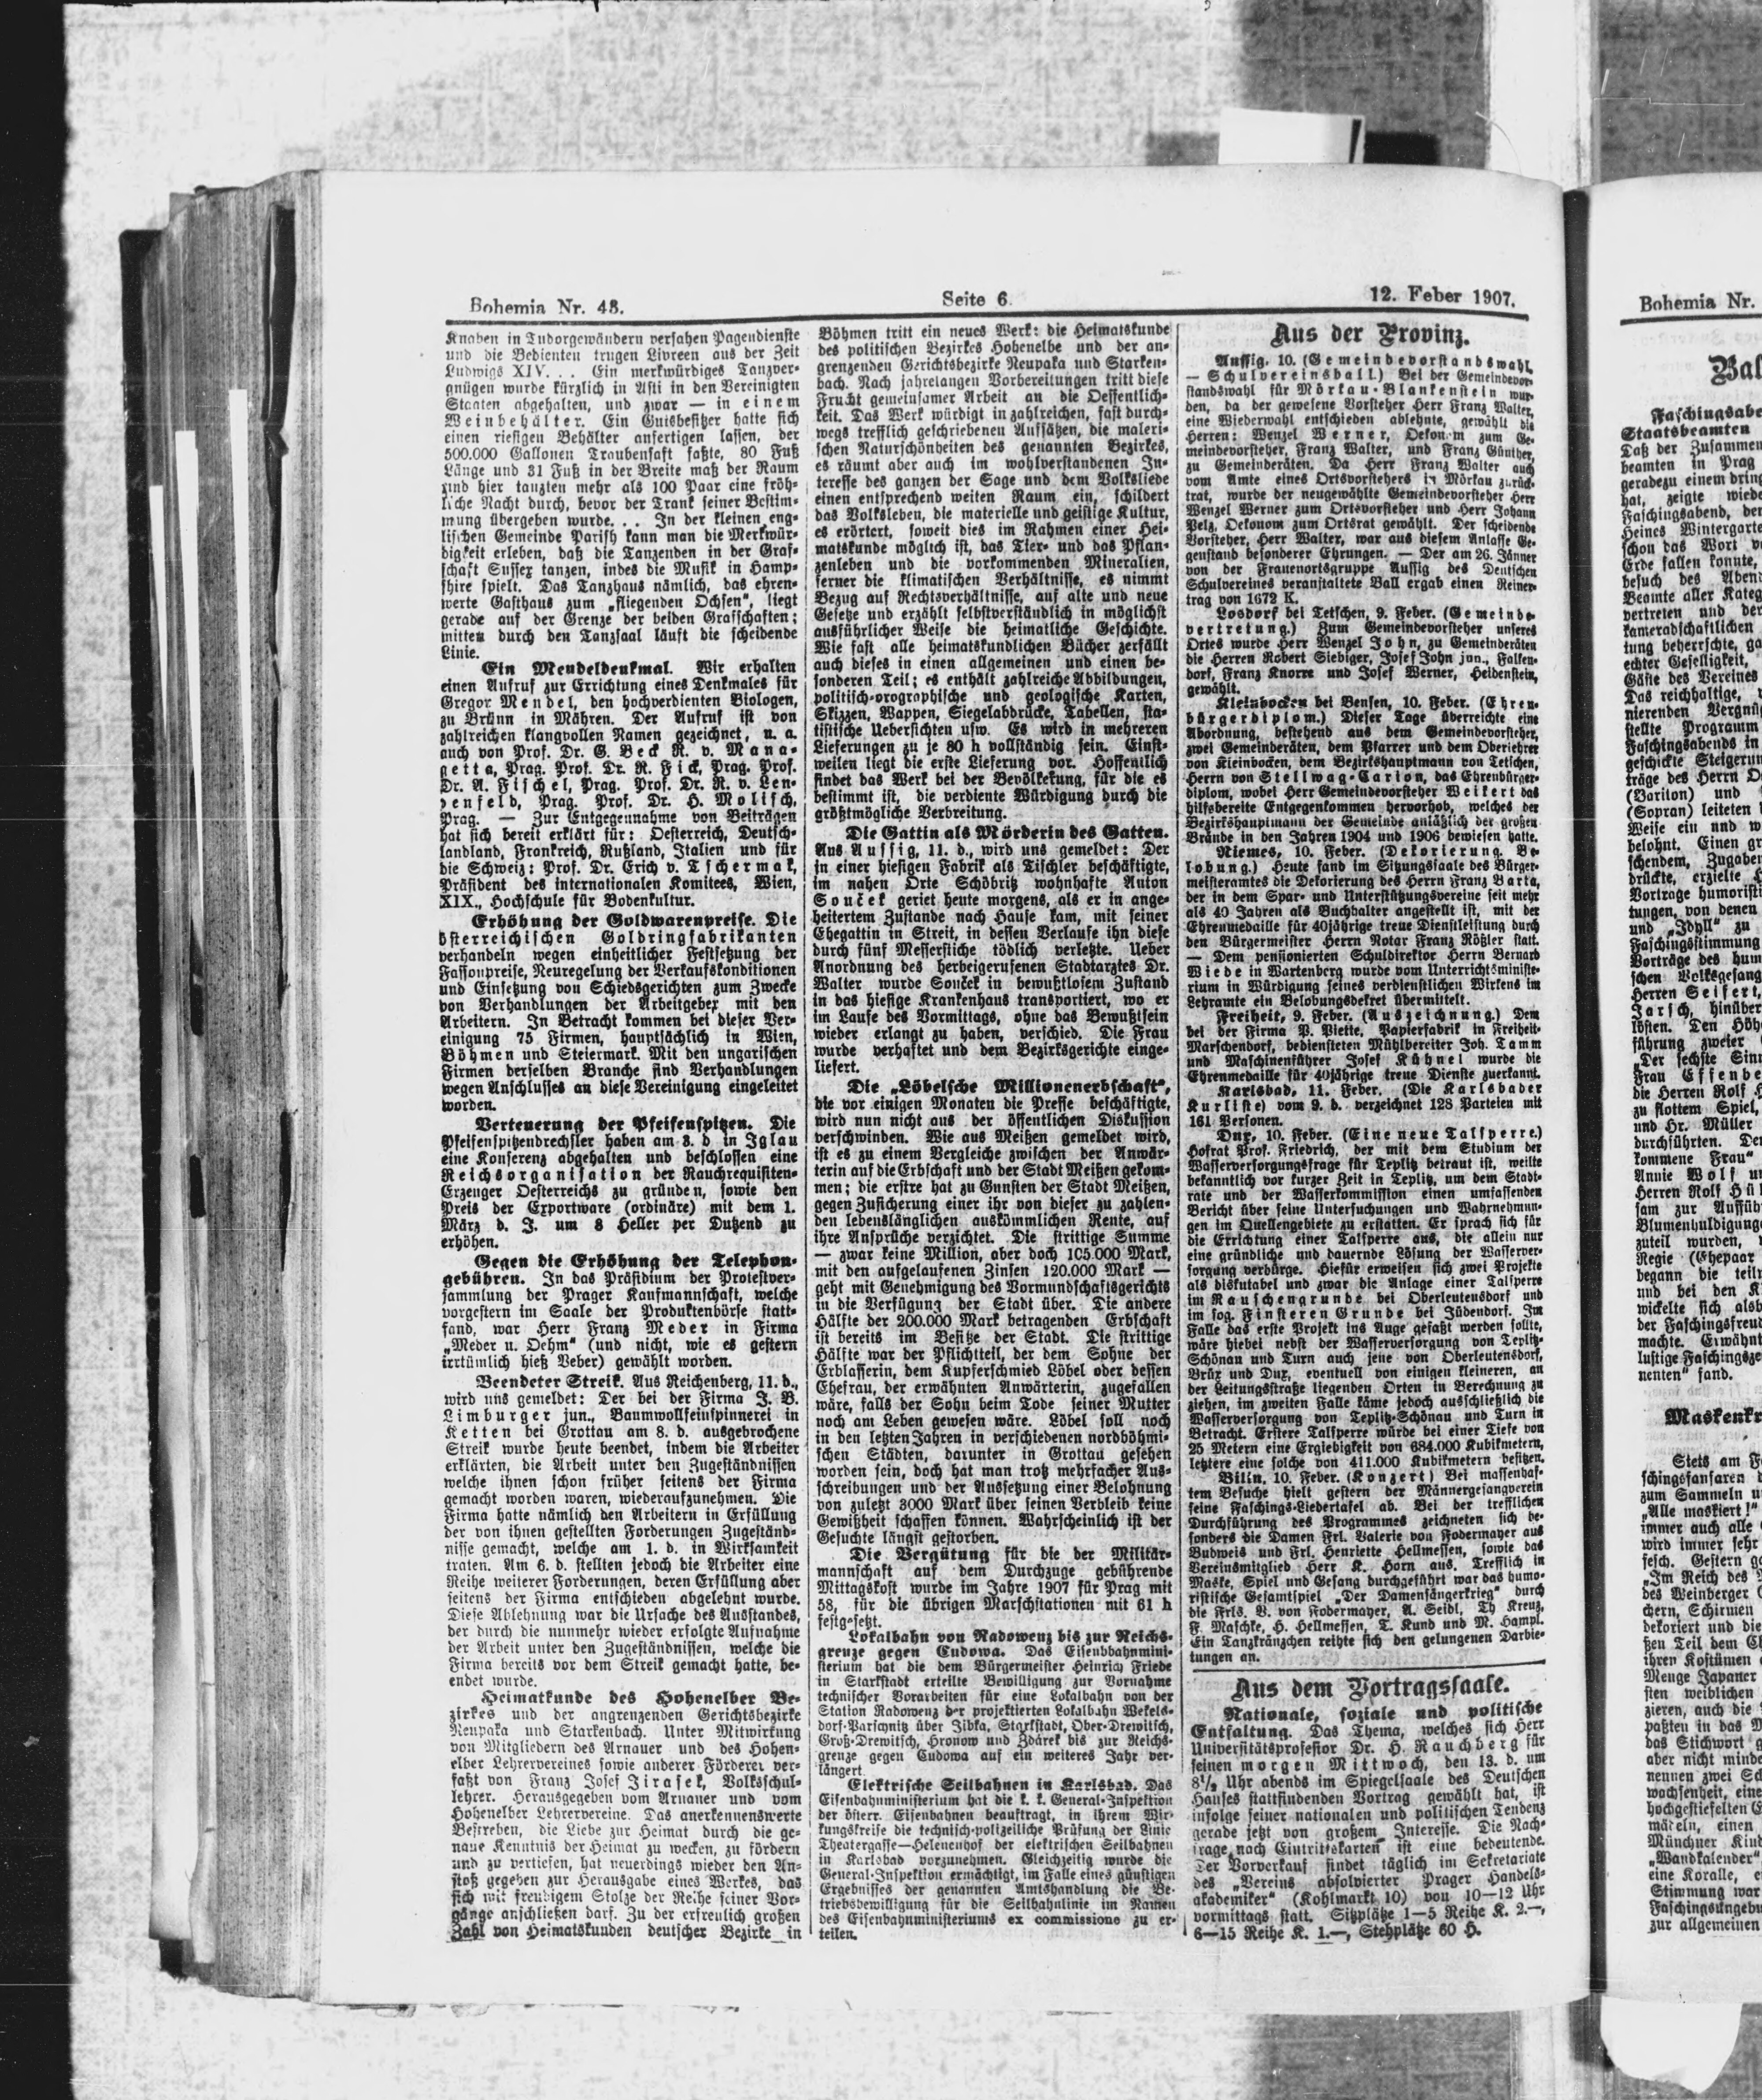 Bohemia Nr. 43.
Seite 6
12. Feber 1907.
Knaben in Tudorgewändern versahen Pagendienste
und die Bedienten trugen Livreen aus der Zeit
Ludwigs XIV. . . Ein merkwürdiges Tanzver-
gnügen wurde kürzlich in Asti in den Vereinigten
Staaten abgehalten, und zwar — in einem
Weinbehälter. Ein Gutsbesitzer hatte sich
einen riesigen Behälter anfertigen lassen, der
500.000 Gallonen Traubensaft faßte, 80 Fuß
Länge und 31 Fuß in der Breite maß der Raum
und hier tanzten mehr als 100 Paar eine fröh-
liche Nacht durch, bevor der Trank seiner Bestim-
mung übergeben wurde. . . In der kleinen eng-
lischen Gemeinde Parish kann man die Merkwür-
digkeit erleben, daß die Tanzenden in der Graf-
schaft Sussex tanzen, indes die Musik in Hamp-
shire spielt. Das Tanzhaus nämlich, das ehren-
werte Gasthaus zum „fliegenden Ochsen“, liegt
gerade auf der Grenze der beiden Grafschaften;
mitten durch den Tanzsaal läuft die scheidende
Linie.
Ein Mendeldenkmal. Wir erhalten
einen Aufruf zur Errichtung eines Denkmales für
Gregor Mendel, den hochverdienten Biologen,
zu Brünn in Mähren. Der Aufruf ist von
zahlreichen klangvollen Namen gezeichnet, u. a.
auch von Prof. Dr. G. Beck R. v. Mana-
getta, Prag. Prof. Dr. R. Fick, Prag. Prof.
Dr. A. Fischel, Prag. Prof. Dr. R. v. Len-
denfeld, Prag. Prof. Dr. H. Molisch,
Prag. — Zur Entgegennahme von Beiträgen
hat sich bereit erklärt für: Oesterreich, Deutsch-
landland, Frankreich, Rußland, Italien und für
die Schweiz: Prof. Dr. Erich v. Tschermak,
Präsident des internationalen Komitees, Wien,
XIX., Hochschule für Bodenkultur.
Erhöhung der Goldwarenpreise. Die
österreichischen Goldringfabrikanten
verhandeln wegen einheitlicher Festsetzung der
Fassonpreise, Neuregelung der Verkaufskonditionen
und Einsetzung von Schiedsgerichten zum Zwecke
von Verhandlungen der Arbeitgeber mit den
Arbeitern. In Betracht kommen bei dieser Ver-
einigung 75 Firmen, hauptsächlich in Wien,
Böhmen und Steiermark. Mit den ungarischen
Firmen derselben Branche sind Verhandlungen
wegen Anschlusses an diese Vereinigung eingeleitet
worden.
Verteuerung der Pfeifenspitzen. Die
Pfeifenspitzendrechsler haben am 3. d. in Iglau
eine Konferenz abgehalten und beschlossen eine
Reichsorganisation der Rauchrequisiten-
Erzeuger Oesterreichs zu gründen, sowie den
Preis der Exportware (ordinäre) mit dem 1.
März d. J. um 8 Heller per Dutzend zu
erhöhen.
Gegen die Erhöhung der Telephon-
gebühren. In das Präsidium der Protestver-
sammlung der Prager Kaufmannschaft, welche
vorgestern im Saale der Produktenbörse statt-
fand, war Herr Franz Meder in Firma
„Meder u. Oehm“ (und nicht, wie es gestern
irrtümlich hieß Veber) gewählt worden.
Beendeter Streik. Aus Reichenberg, 11. d.,
wird uns gemeldet: Der bei der Firma J. B.
Limburger jun., Baumwollfeinspinnerei in
Ketten bei Grottau am 8. d. ausgebrochene
Streik wurde heute beendet, indem die Arbeiter
erklärten, die Arbeit unter den Zugeständnissen
welche ihnen schon früher seitens der Firma
gemacht worden waren, wiederaufzunehmen. Die
Firma hatte nämlich den Arbeitern in Erfüllung
der von ihnen gestellten Forderungen Zugeständ-
nisse gemacht, welche am 1. d. in Wirksamkeit
traten. Am 6. d. stellten jedoch die Arbeiter eine
Reihe weiterer Forderungen, deren Erfüllung aber
seitens der Firma entschieden abgelehnt wurde.
Diese Ablehnung war die Ursache des Ausstandes,
der durch die nunmehr wieder erfolgte Aufnahme
der Arbeit unter den Zugeständnissen, welche die
Firma bereits vor dem Streik gemacht hatte, be-
endet wurde.
Heimatkunde des Hohenelber Be-
zirkes und der angrenzenden Gerichtsbezirke
Neupaka und Starkenbach. Unter Mitwirkung
von Mitgliedern des Arnauer und des Hohen-
elber Lehrervereines sowie anderer Förderer ver-
faßt von Franz Josef Jirasek, Volksschul-
lehrer. Herausgegeben vom Arnauer und vom
Hohenelber Lehrervereine. Das anerkennenswerte
Bestreben, die Liebe zur Heimat durch die ge-
naue Kenntnis der Heimat zu wecken, zu fördern
und zu vertiefen, hat neuerdings wieder den An-
stoß gegeben zur Herausgabe eines Werkes, das
sich mit freudigem Stolze der Reihe seiner Vor-
gänge anschließen darf. Zu der erfreulich großen
Zahl von Heimatskunden deutscher Bezirke in
Böhmen tritt ein neues Werk: die Heimatskunde
des politischen Bezirkes Hohenelbe und der an-
grenzenden Gerichtsbezirke Neupaka und Starken-
bach. Nach jahrelangen Vorbereitungen tritt diese
Frucht gemeinsamer Arbeit an die Oeffentlich-
keit. Das Werk würdigt in zahlreichen, fast durch-
wegs trefflich geschriebenen Aufsätzen, die maleri-
schen Naturschönheiten des genannten Bezirkes,
es räumt aber auch im wohlverstandenen In-
teresse des ganzen der Sage und dem Volksliede
einen entsprechend weiten Raum ein, schildert
das Volksleben, die materielle und geistige Kultur,
es erörtert, soweit dies im Rahmen einer Hei-
matskunde möglich ist, das Tier- und das Pflan-
zenleben und die vorkommenden Mineralien,
ferner die klimatischen Verhältnisse, es nimmt
Bezug auf Rechtsverhältnisse, auf alte und neue
Gesetze und erzählt selbstverständlich in möglichst
ausführlicher Weise die heimatliche Geschichte.
Wie fast alle heimatskundlichen Bücher zerfällt
auch dieses in einen allgemeinen und einen be-
sonderen Teil; es enthält zahlreiche Abbildungen,
politisch-orographische und geologische Karten,
Skizzen, Wappen, Siegelabdrücke, Tabellen, sta-
tistische Uebersichten usw. Es wird in mehreren
Lieferungen zu je 80 h vollständig sein. Einst-
weilen liegt die erste Lieferung vor. Hoffentlich
findet das Werk bei der Bevölkekung, für die es
bestimmt ist, die verdiente Würdigung durch die
größtmögliche Verbreitung.
Die Gattin als Mörderin des Gatten.
Aus Aussig, 11. d., wird uns gemeldet: Der
in einer hiesigen Fabrik als Tischler beschäftigte,
im nahen Orte Schöbritz wohnhafte Anton
Souček geriet heute morgens, als er in ange-
heitertem Zustande nach Hause kam, mit seiner
Ehegattin in Streit, in dessen Verlaufe ihn diese
durch fünf Messerstiche tödlich verletzte. Ueber
Anordnung des herbeigerufenen Stadtarztes Dr.
Walter wurde Souček in bewußtlosem Zustand
in das hiesige Krankenhaus transportiert, wo er
im Laufe des Vormittags, ohne das Bewußtsein
wieder erlangt zu haben, verschied. Die Frau
wurde verhaftet und dem Bezirksgerichte einge-
liefert.
Die „Löbelsche Millionenerbschaft“,
die vor einigen Monaten die Presse beschäftigte,
wird nun nicht aus der öffentlichen Diskussion
verschwinden. Wie aus Meißen gemeldet wird,
ist es zu einem Vergleiche zwischen der Anwär-
terin auf die Erbschaft und der Stadt Meißen gekom-
men; die erstre hat zu Gunsten der Stadt Meißen,
gegen Zusicherung einer ihr von dieser zu zahlen-
den lebenslänglichen auskömmlichen Rente, auf
ihre Ansprüche verzichtet. Die strittige Summe
— zwar keine Million, aber doch 105.000 Mark,
mit den aufgelaufenen Zinsen 120.000 Mark —
geht mit Genehmigung des Vormundschaftsgerichts
in die Verfügung der Stadt über. Die andere
Hälfte der 200.000 Mark betragenden Erbschaft
ist bereits im Besitze der Stadt. Die strittige
Hälfte war der Pflichtteil, der dem Sohne der
Erblasserin, dem Kupferschmied Löbel oder dessen
Ehefrau, der erwähnten Anwärterin, zugefallen
wäre, falls der Sohn beim Tode seiner Mutter
noch am Leben gewesen wäre. Löbel soll noch
in den letzten Jahren in verschiedenen nordböhmi-
schen Städten, darunter in Grottau gesehen
worden sein, doch hat man trotz mehrfacher Aus-
schreibungen und der Aussetzung einer Belohnung
von zuletzt 3000 Mark über seinen Verbleib keine
Gewißheit schaffen können. Wahrscheinlich ist der
Gesuchte längst gestorben.
Die Vergütung für die der Militär-
mannschaft auf dem Durchzuge gebührende
Mittagskost wurde im Jahre 1907 für Prag mit
58, für die übrigen Marschstationen mit 61 h
festgesetzt.
Lokalbahn von Radowenz bis zur Reichs-
grenze gegen Cudowa. Das Eisenbbahnmini-
sterium hat die dem Bürgermeister Heinrich Friede
in Starkstadt erteilte Bewilligung zur Vornahme
technischer Vorarbeiten für eine Lokalbahn von der
Station Radowenz der projektierten Lokalbahn Wekels-
dorf-Parschnitz über Jibka, Starkstadt, Ober-Drewitsch,
Groß-Drewitsch, Hronow und Zdárek bis zur Reichs-
grenze gegen Cudowa auf ein weiteres Jahr ver-
längert.
Elektrische Seilbahnen in Karlsbad. Das
Eisenbahnministerium hat die k. k. General-Inspektion
der österr. Eisenbahnen beauftragt, in ihrem Wir-
kungskreise die technisch-polizeiliche Prüfung der Linie
Theatergasse—Helenenhof der elektrischen Seilbahnen
in Karlsbad vorzunehmen. Gleichzeitig wurde die
General-Inspektion ermächtigt, im Falle eines günstigen
Ergebnisses der genannten Amtshandlung die Be-
triebsbewilligung für die Seilbahnlinie im Namen
des Eisenbahnministeriums ex commissione zu er-
teilen.
Aus der Provinz.
Aussig. 10. (Gemeindevorstandswahl.
— Schulvereinsball.) Bei der Gemeindevor-
standswahl für Mörkau-Blankenstein wur-
den, da der gewesene Vorsteher Herr Franz Walter,
eine Wiederwahl entschieden ablehnte, gewählt die
Herren: Wenzel Werner, Oekonom zum Ge-
meindevorsteher, Franz Walter, und Franz Günther,
zu Gemeinderäten. Da Herr Franz Walter auch
vom Amte eines Ortsvorstehers in Mörkau zurück-
trat, wurde der neugewählte Gemeindevorsteher Herr
Wenzel Werner zum Ortsvorsteher und Herr Johann
Pelz, Oekonom zum Ortsrat gewählt. Der scheidende
Vorsteher, Herr Walter, war aus diesem Anlasse Ge-
genstand besonderer Ehrungen. — Der am 26. Jänner
von der Frauenortsgruppe Aussig des Deutschen
Schulvereines veranstaltete Ball ergab einen Reiner-
trag von 1672 K.
Losdorf bei Tetschen, 9. Feber. (Gemeinde-
vertretung.) Zum Gemeindevorsteher unseres
Ortes wurde Herr Wenzel John, zu Gemeinderäten
die Herren Robert Siebiger, Josef John jun., Falken-
dorf, Franz Knorre und Josef Werner, Heidenstein,
gewählt.
Kleinbocken bei Bensen, 10. Feber. (Ehren-
bürgerdiplom.) Dieser Tage überreichte eine
Abordnung, bestehend aus dem Gemeindevorsteher,
zwei Gemeinderäten, dem Pfarrer und dem Oberlehrer
von Kleinbocken, dem Bezirkshauptmann von Tetschen,
Herrn von Stellwag-Carion, das Ehrenbürger-
diplom, wobei Herr Gemeindevorsteher Weikert das
hilfsbereite Entgegenkommen hervorhob, welches der
Bezirkshauptmann der Gemeinde anläßlich der großen
Brände in den Jahren 1904 und 1906 bewiesen hatte.
Niemes, 10. Feber. (Dekorierung. Be-
lobung.) Heute fand im Sitzungssaale des Bürger-
meisteramtes die Dekorierung des Herrn Franz Barta,
der in dem Spar- und Unterstützungsvereine seit mehr
als 40 Jahren als Buchhalter angestellt ist, mit der
Ehrenmedaille für 40jährige treue Dienstleistung durch
den Bürgermeister Herrn Notar Franz Rößler statt.
— Dem pensionierten Schuldirektor Herrn Bernard
Wiede in Wartenberg wurde vom Unterrichtsministe-
rium in Würdigung seines verdienstlichen Wirkens im
Lehramte ein Belobungsdekret übermittelt.
Freiheit, 9. Feber. (Auszeichnung.) Dem
bei der Firma P. Piette, Papierfabrik in Freiheit-
Marschendorf, bediensteten Mühlbereiter Joh. Tamm
und Maschinenführer Josef Kühnel wurde die
Ehrenmedaille für 40jährige treue Dienste zuerkannt.
Karlsbad, 11. Feber. (Die Karlsbader
Kurliste) vom 9. d. verzeichnet 128 Parteien mit
161 Personen.
Dux, 10. Feber. (Eine neue Talsperre.)
Hofrat Prof. Friedrich, der mit dem Studium der
Wasserversorgungsfrage für Teplitz betraut ist, weilte
bekanntlich vor kurzer Zeit in Teplitz, um dem Stadt-
rate und der Wasserkommission einen umfassenden
Bericht über seine Untersuchungen und Wahrnehmun-
gen im Quellengebiete zu erstatten. Er sprach sich für
die Errichtung einer Talsperre aus, die allein nur
eine gründliche und dauernde Lösung der Wasserver-
sorgung verbürge. Hiefür erweisen sich zwei Projekte
als diskutabel und zwar die Anlage einer Talsperre
im Rauschengrunde bei Oberleutensdorf und
im sog. Finsteren Grunde bei Jüdendorf. Im
Falle das erste Projekt ins Auge gefaßt werden sollte,
wäre hiebei nebst der Wasserversorgung von Teplitz-
Schönau und Turn auch jene von Oberleutensdorf,
Brüx und Dux, eventuell von einigen kleineren, an
der Leitungsstraße liegenden Orten in Berechnung zu
ziehen, im zweiten Falle käme jedoch ausschließlich die
Wasserversorgung von Teplitz-Schönau und Turn in
Betracht. Erstere Talsperre würde bei einer Tiefe von
25 Metern eine Ergiebigkeit von 684.000 Kubikmetern,
letztere eine solche von 411.000 Kubikmetern besitzen.
Bilin, 10. Feber. (Konzert) Bei massenhaf-
tem Besuche hielt gestern der Männergesangverein
seine Faschings-Liedertafel ab. Bei der trefflichen
Durchführung des Programmes zeichneten sich be-
sonders die Damen Frl. Valerie von Fodermayer aus
Budweis und Frl. Henriette Hellmessen, sowie das
Vereinsmitglied Herr K. Horn aus. Trefflich in
Maske, Spiel und Gesang durchgeführt war das humo-
ristische Gesamtspiel „Der Damensängerkrieg“ durch
die Frls. V. von Fodermayer, A. Seidl, Th Kreuz,
F. Maschke, H. Hellmessen, T. Kund und M. Hampl.
Ein Tanzkränzchen reihte sich den gelungenen Darbie-
tungen an.
Aus dem Vortragssaale.
Nationale, soziale und politische
Entfaltung. Das Thema, welches sich Herr
Universitätsprofessor Dr. H. Rauchberg für
seinen morgen Mittwoch, den 13. d. um
8½ Uhr abends im Spiegelsaale des Deutschen
Hauses stattfindenden Vortrag gewählt hat, ist
infolge seiner nationalen und politischen Tendenz
gerade jetzt von großem Interesse. Die Nach-
frage nach Eintrittskarten ist eine bedeutende.
Der Vorverkauf findet täglich im Sekretariate
des „Vereins absolvierter Prager Handels-
akademiker“ (Kohlmarkt 10) von 10—12 Uhr
vormittags statt. Sitzplätze 1—5 Reihe K. 2.—,
6—15 Reihe K. 1.—, Stehplätze 60 H.
Bohemia Nr.
Faschingsabe
Staatsbeamten
Daß der Zusammen
beamten in Prag
geradezu einem dring
hat, zeigte wiede
Faschingsabend, der
Heines Wintergarte
schon das Wort v
Erde fallen konnte,
besuch des Abend
Beamte aller Kateg
vertreten und der
kameradschaftlichen
tung beherrschte, ga
echter Geselligkeit,
Gäste des Vereines
Das reichhaltige,
nierenden Vergnü
stellte Programm
Faschingsabends in
geschickte Steigerun
träge des Herrn O
(Bariton) und
(Sopran) leiteten
Weise ein und w
belohnt. Einen gr
schendem, Zugaben
drückte, erzielte
Vorträge humoristi
tungen, von denen
und „Idyll“ zu
Faschingsstimmung
Vorträge des hum
schen Volksgesang
Herren Seifert,
Jarsch, hinüber
lösten. Den Höh
führung zweier
„Der sechste Sinn
Frau Effenbe
die Herren Rolf
zu flottem Spiel,
und Hr. Müller
durchführten. De
kommene Frau“
Annie Wolf un
Herren Rolf Hü
sam zur Aufführ
Blumenhuldigunge
zuteil wurden,
Regie (Ehepaar
begann die teiln
und bei den K
wickelte sich alsb
der Faschingsfreud
machte. Erwähnt
lustige Faschingsze
nenten“ fand.
Maskenkr
Stets am F
schingsfanfaren
zum Sammeln u
„Alle maskiert!“
immer auch alle
wird immer sehr
fesch. Gestern g
„Im Reich des
des Weinberger
chern, Schirmen
dekoriert und die
ßen Teil dem C
ihren Kostümen
Menge Japaner
sten weiblichen
zieren, auch die
paßten in das M
das Stichwort g
aber nicht minde
nennen zwei Sch
wachsenheit, eine
hochgestiefelten E
mädeln, einen
Münchner Kind
„Wandkalender“
eine Koralle, e
Stimmung war
Faschingsungebu
zur allgemeinen